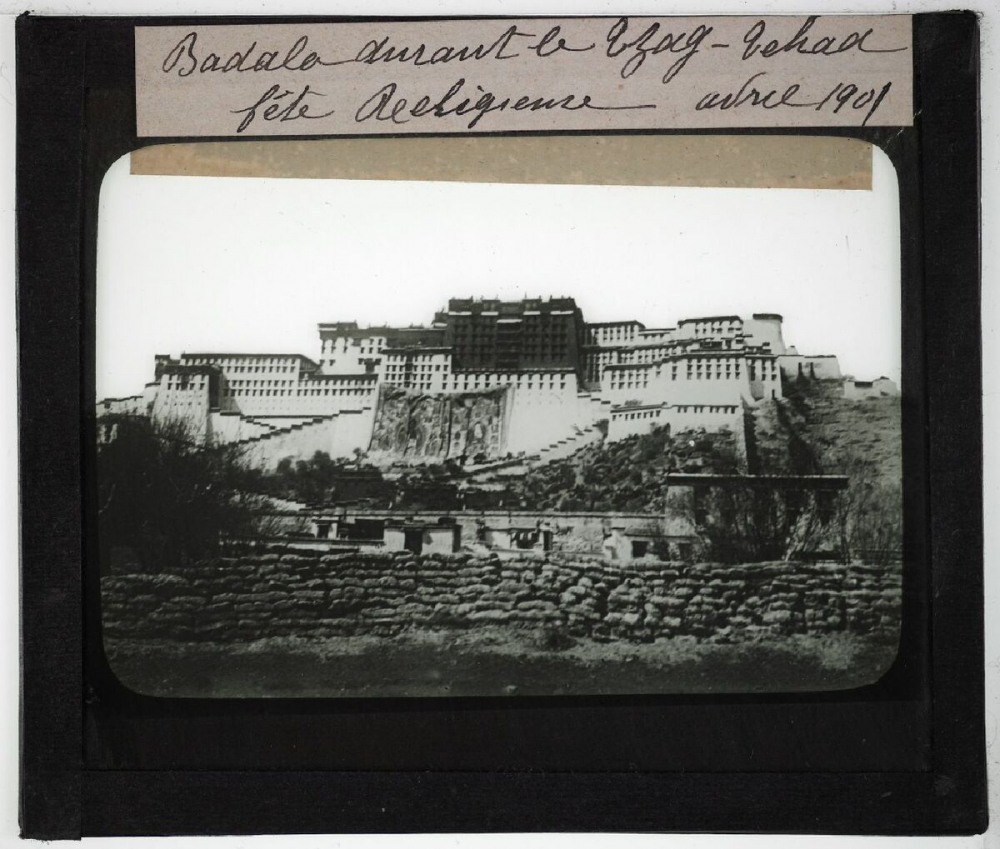 Badala durant le Tzag-Tchad
fête Religieuse avril 1901